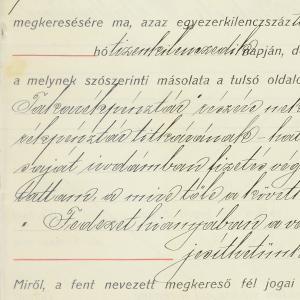 megkeresésére ma, azaz egyezerkilencszáz
hó tizenkilencedik napján, d
a melynek szószerinti másolata a tulsó oldalo
Takarékpénztár részére nek
rékpénztár titkárának ha
saját irodámban fizetés vég
tattam, a mire tőle a követk
Fedezet hiányában a v
jesíthetjük
Miről, a fent nevezett megkereső fél jogai